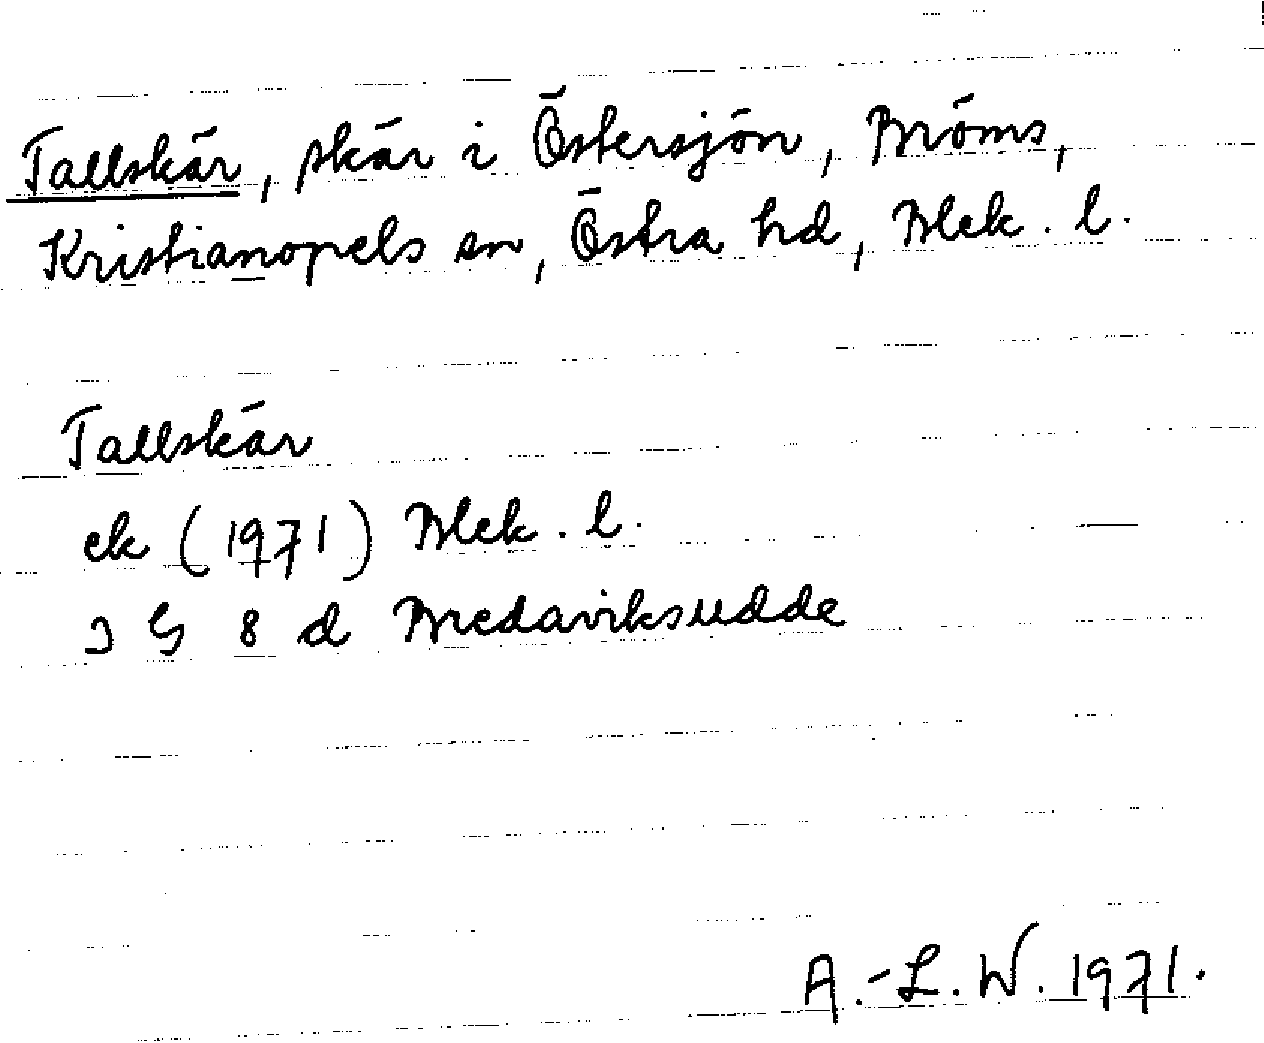 Tallskär, skär i Östersjön, Bröms,
Kristianopels sn, Östra hd, Blek. l.
Tallskär
ek (1971) Blek. l.
3 G 8 d Bredaviksudde
A.-L. W. 1971.